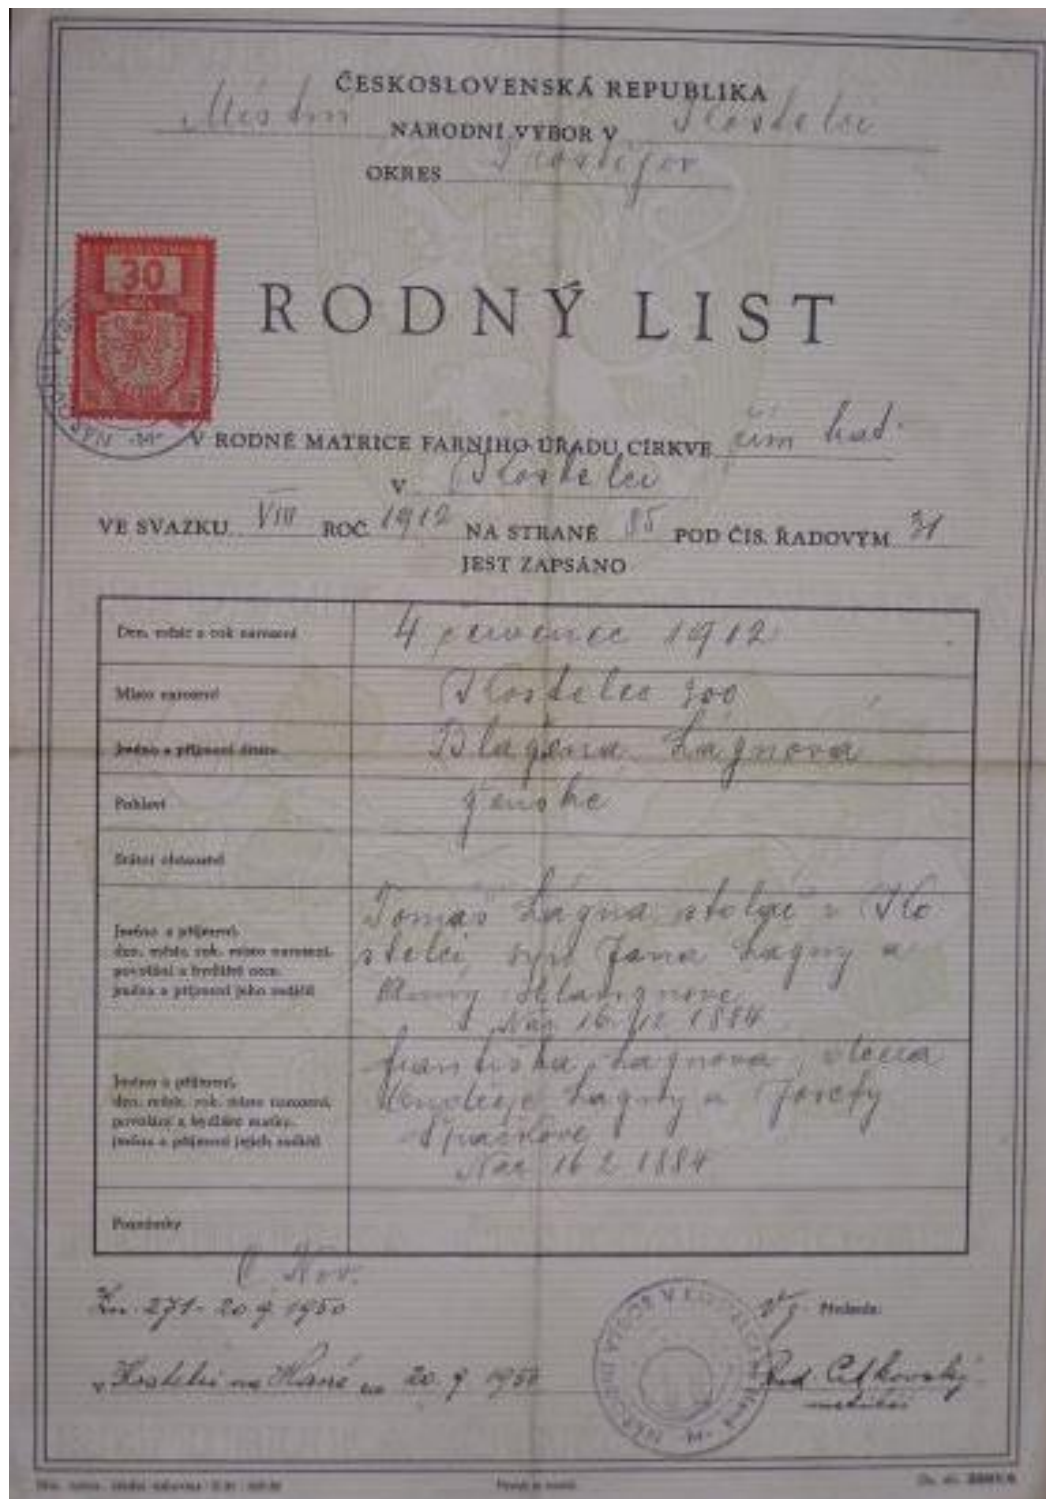 ČESKOSLOVENSKÁ REPUBLIKA
Místní NÁRODNÍ VÝBOR V Kostelci
OKRES Prostějov
30
RODNÝ LIST
V RODNÉ MATRICE FARNÍHO ÚŘADU CÍRKVE řím. kat.
v Kostelci
VE SVAZKU VIII ROČ. 1912 NA STRANĚ 85 POD ČÍS. ŘADOVÝM 31
JEST ZAPSÁNO
Den, měsíc a rok narození 4 červenec 1912
Místo narození Kostelec 300
Jméno a příjmení dítěte Blažena Lágnová
Pohlaví ženské
Státní občanství
Jméno a příjmení,
den, měsíc, rok, místo narození,
povolání a bydliště otce,
jména a příjmení jeho rodičů
Tomáš Lágna, stolař v Ko
stelci, syn Jana Lagny a
Nar 16. 12 1884
Jméno a příjmení,
den, měsíc, rok, místo narození,
povolání a bydliště matky,
jména a příjmení jejích rodičů
Františka Lagnová, dcera
Lagny a Josefy
Nar 16 2 1884
Poznámky
271- 20 9 1950
v Kostelci na Hané dne 20. 9 1950
Předseda: